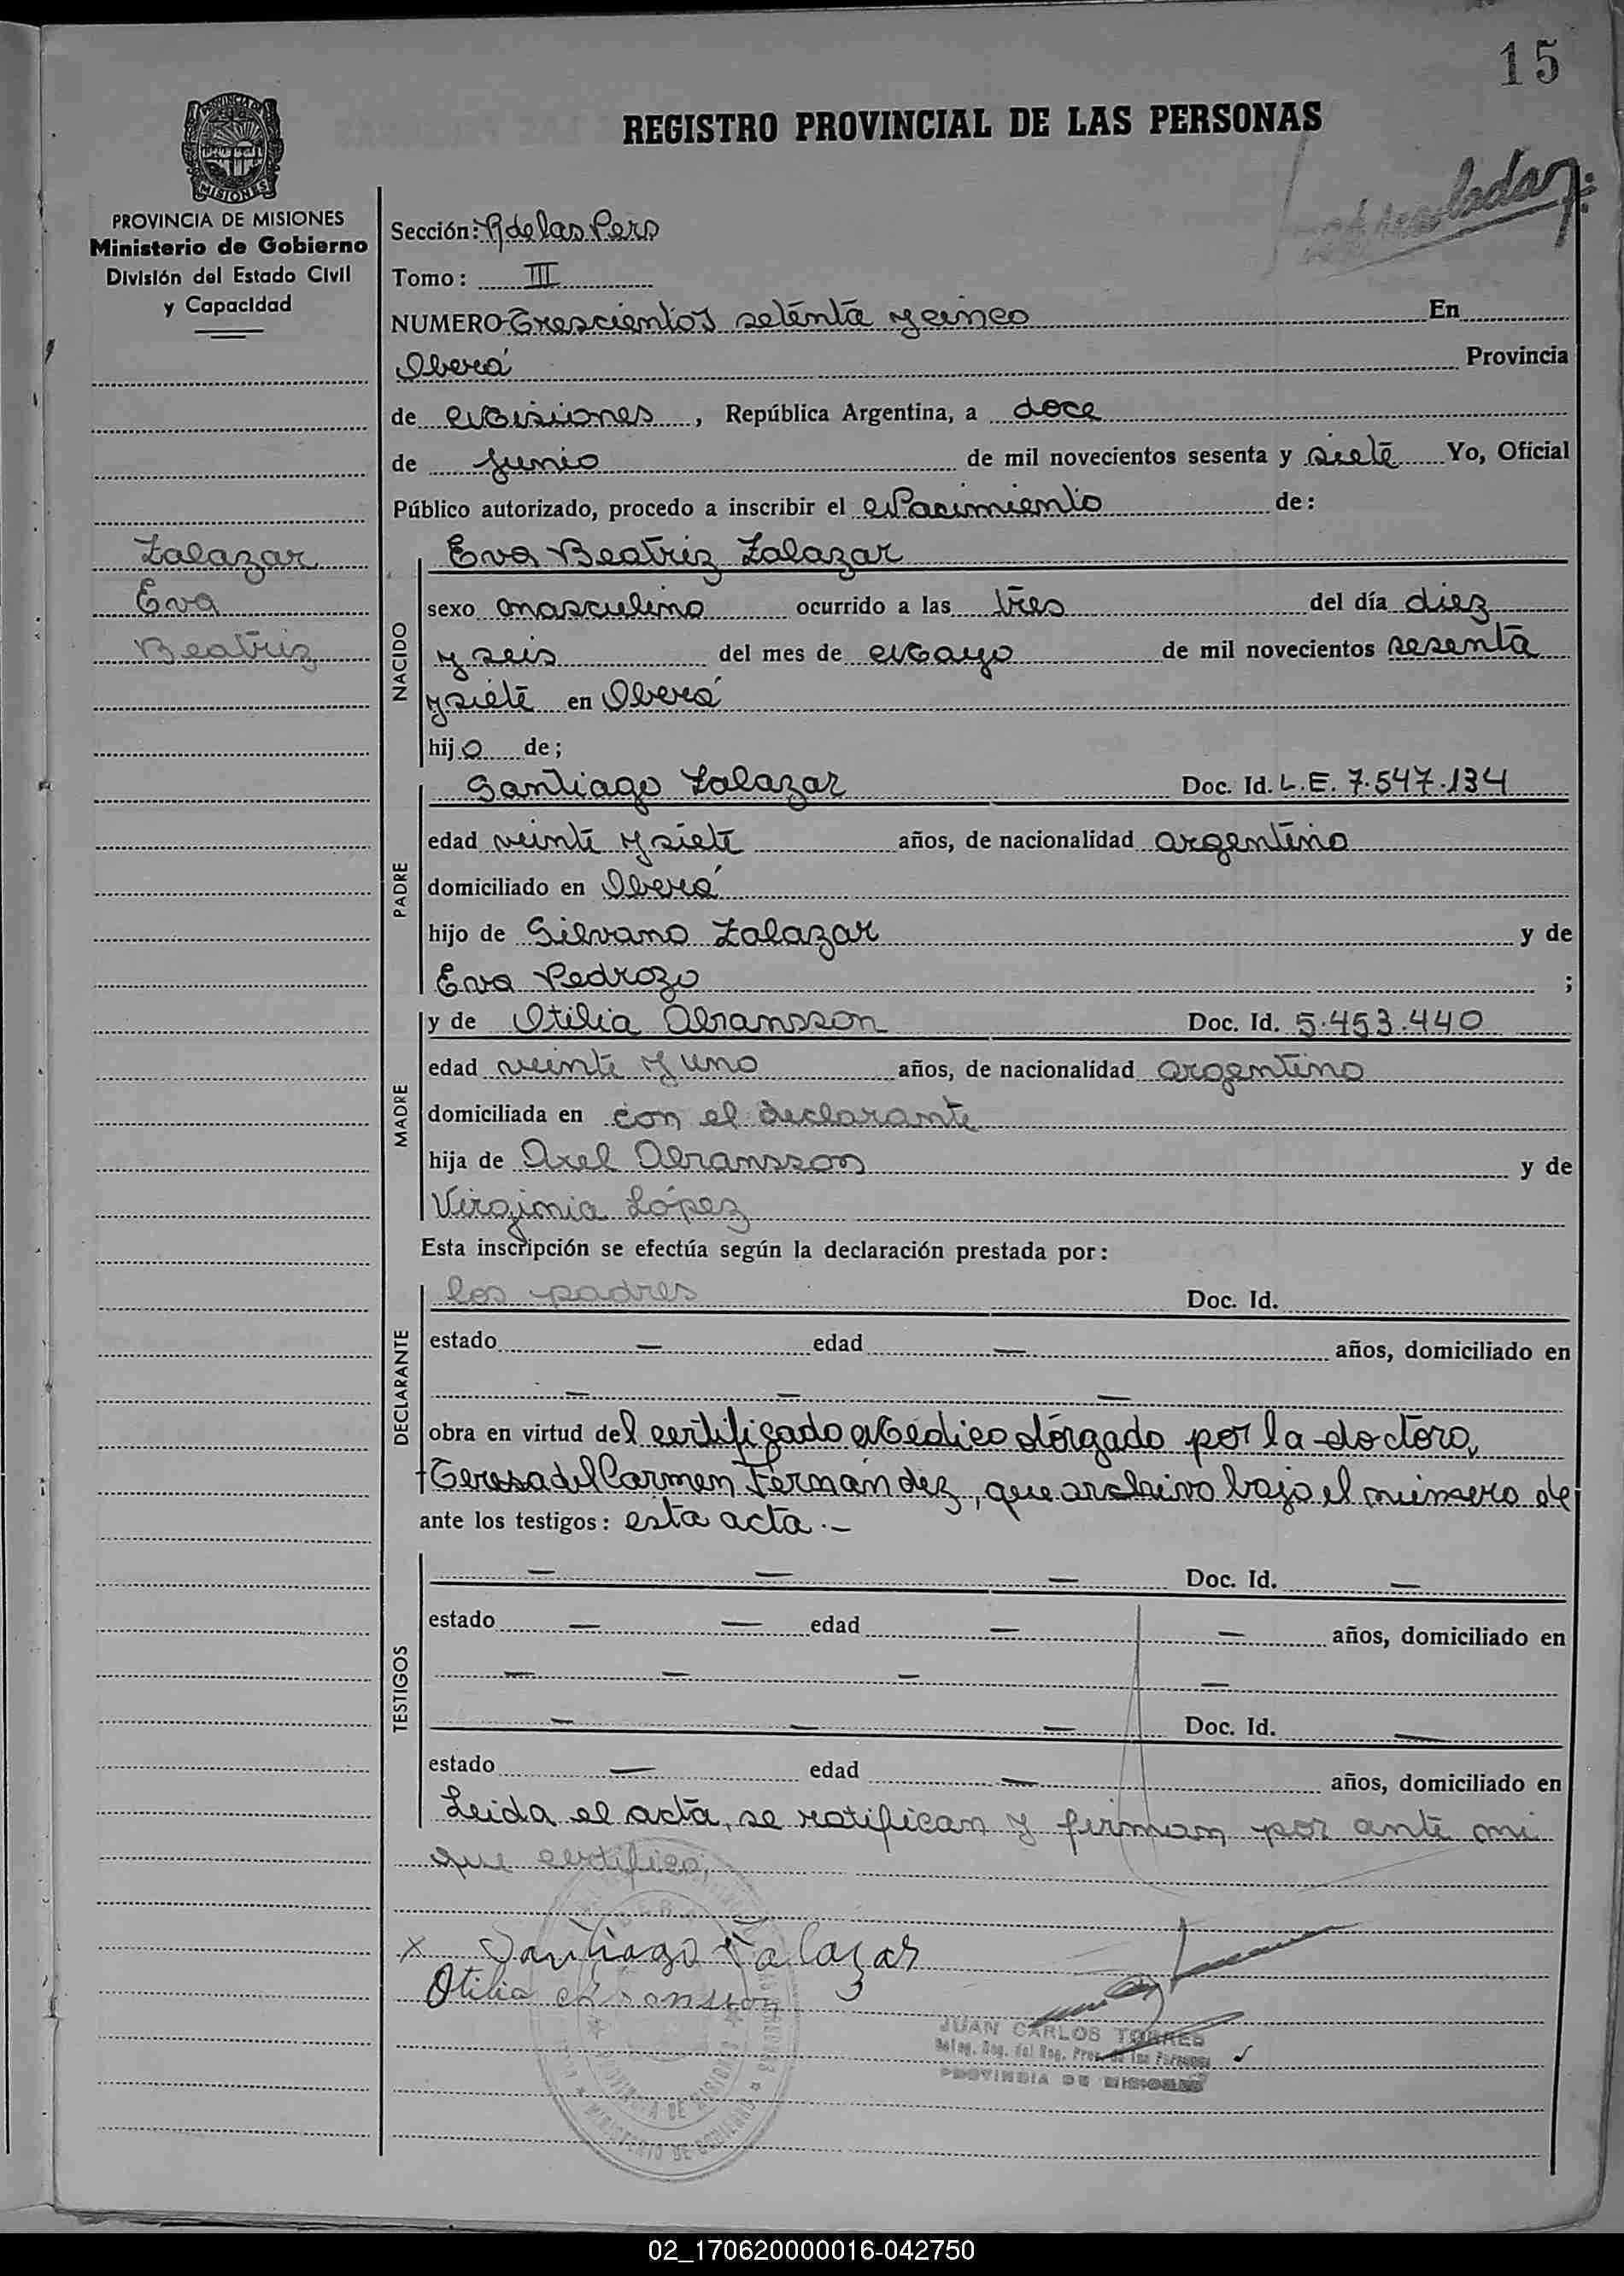 15
REGISTRO PROVINCIAL DE LAS PERSONAS
MISIONES
PROVINCIA DE MISIONES
Ministerio de Gobierno
División del Estado Civil
y Capacidad
Zalazar
Eva
Beatriz
Sección: R de las Pers
Tomo: III
NUMERO Trescientos setenta y cinco En
Oberá Provincia
de Misiones, República Argentina, a doce
de junio de mil novecientos sesenta y siete Yo, Oficial
Público autorizado, procedo a inscribir el Nacimiento de:
NACIDO
Eva Beatriz Zalazar
sexo masculino ocurrido a las tres del día diez
y seis del mes de Mayo de mil novecientos sesenta
y siete en Oberá
hijo de;
PADRE
Santiago Zalazar Doc. Id. L.E. 7.547.134
edad veinte y siete años, de nacionalidad argentino
domiciliado en Oberá
hijo de Silvano Zalazar y de
Eva Pedrozo ;
MADRE
y de Otilia Abramsson Doc. Id. 5.453.440
edad veinte y uno años, de nacionalidad argentino
domiciliada en con el declarante
hija de Axel Abramsson y de
Virginia López
Esta inscripción se efectúa según la declaración prestada por:
DECLARANTE
los padres Doc. Id.
estado — edad — años, domiciliado en
— — —
obra en virtud del certificado Médico otorgado por la doctora,
Teresa del Carmen Fernández, que archivo bajo el número de
ante los testigos: esta acta.—
TESTIGOS
— — — Doc. Id. —
estado — — edad — — años, domiciliado en
— — — —
— — — Doc. Id. —
estado — edad — años, domiciliado en
Leida el acta, se ratifican y firman por ante mi
que certifico.
x Santiago Zalazar
Otilia Abramsson
JUAN CARLOS TORRES
PROVINCIA DE MISIONES
PROVINCIA DE MISIONES
MINISTERIO DE GOBIERNO
02_170620000016-042750